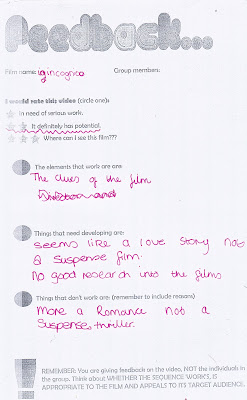 Feedback...
Film name: igncognito Group members:
I would rate this video (circle one):
In need of serious work.
It definitely has potential.
Where can i see this film???
The elements that work are are:
The clues of the film
Things that need developing are:
seems like a love story not
a suspense film.
No good research into the films
Things that don't work are: (remember to include reasons)
More a Romance not a
Suspense, thriller.
REMEMBER: You are giving feedback on the video, NOT the individuals in
the group. Think about WHETHER THE SEQUENCE WORKS, IS
APPROPRIATE TO THE FILM AND APPEALS TO ITS TARGET AUDIENCE.